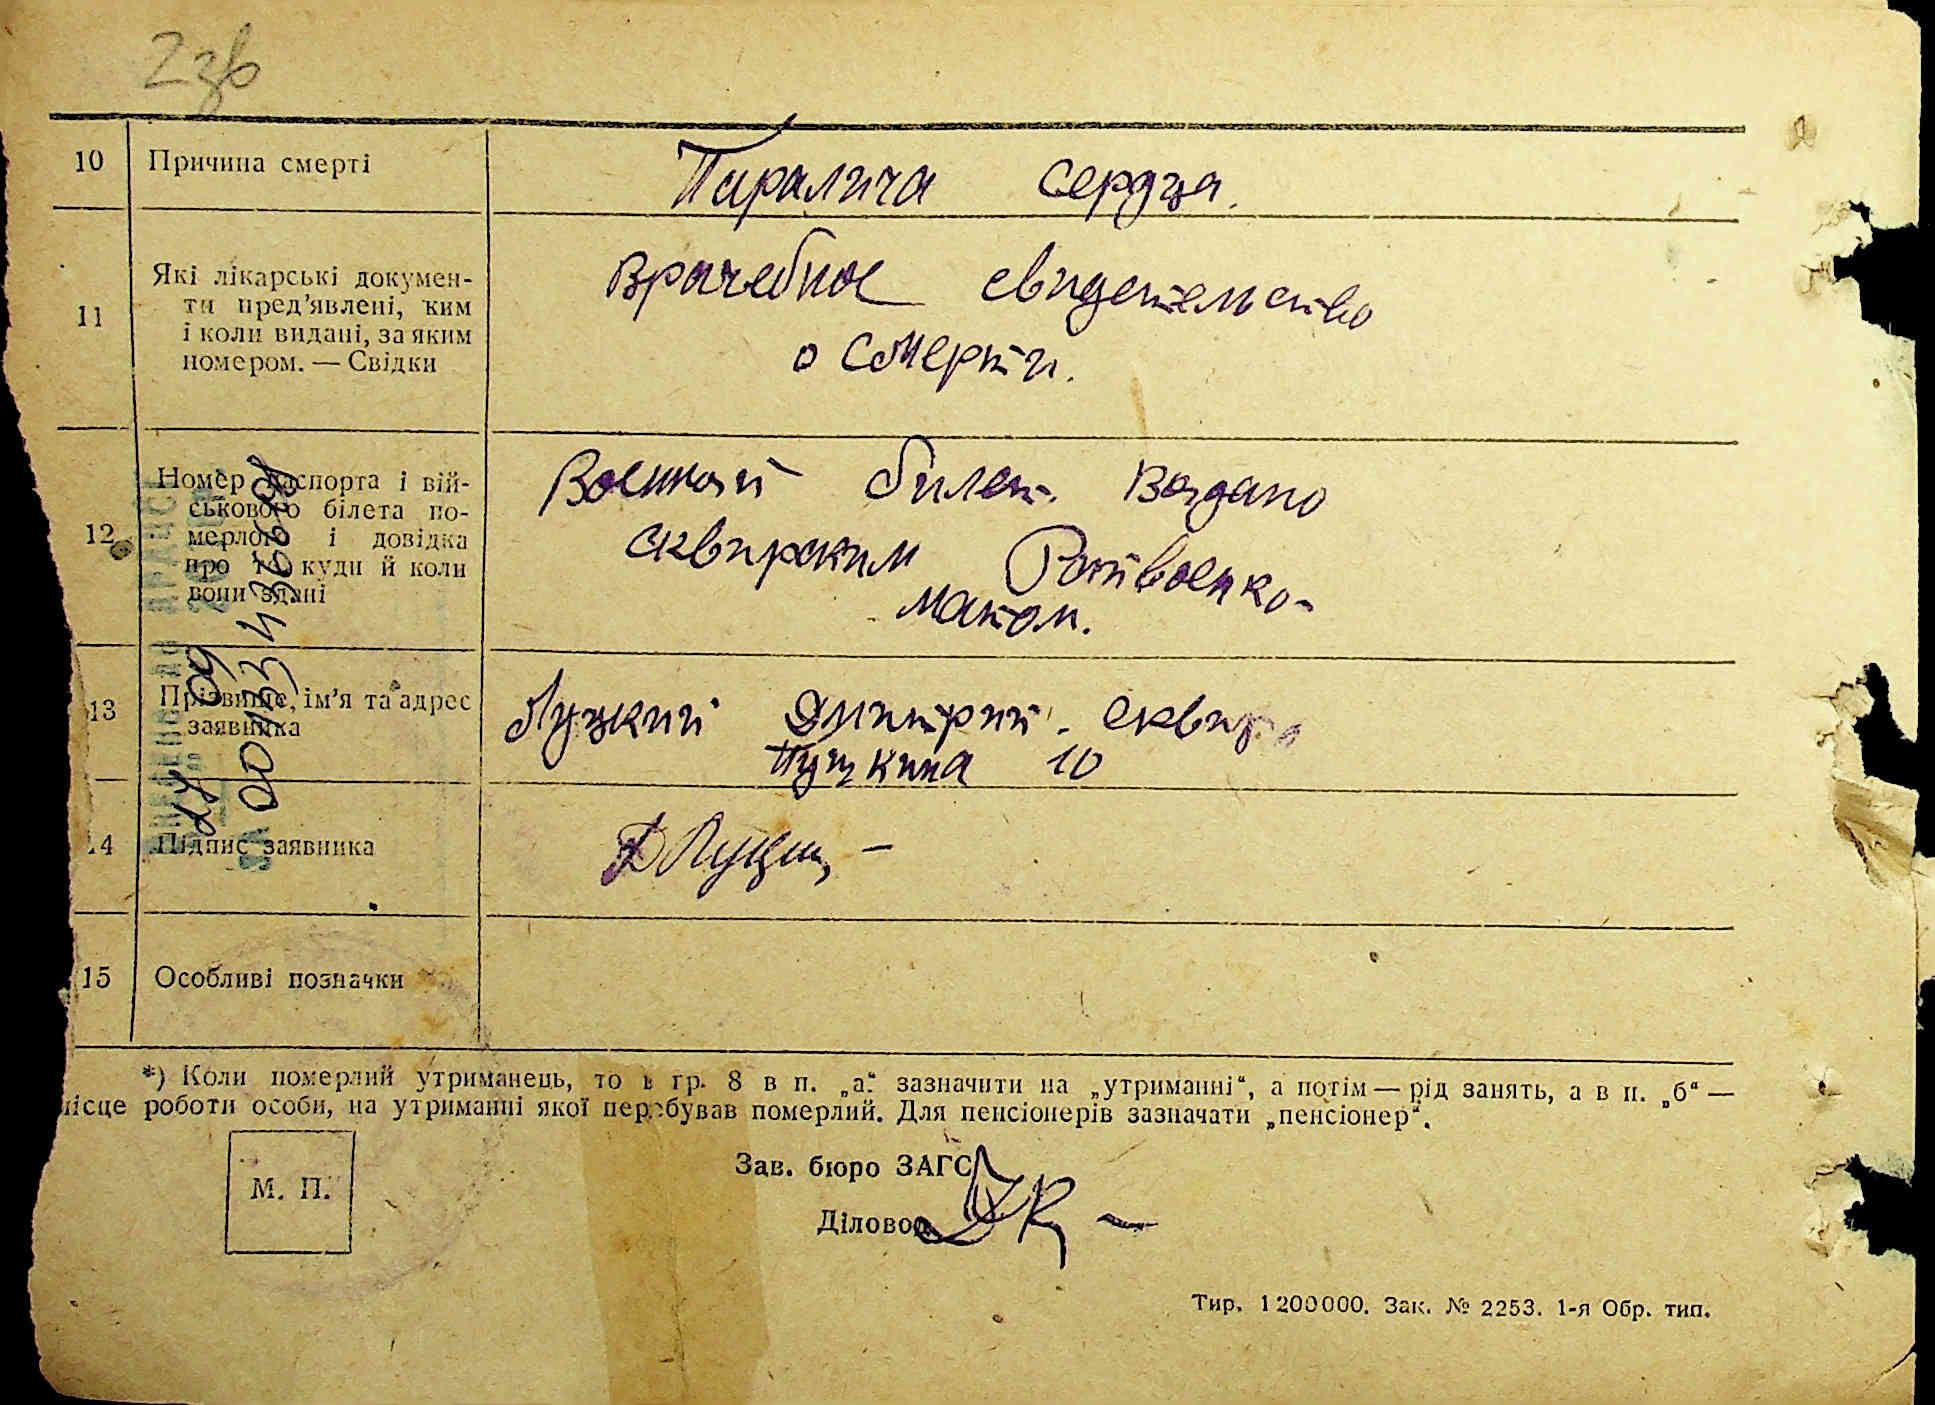 2зв
10 Причина смерті Паралича сердца.
11 Які лікарські докумен-
ти пред'явлені, ким
і коли видані, за яким
номером. — Свідки
Врачебное свидетельство
о смерти.
12 Номер паспорта і вій-
ськового білета по-
мерлого і довідка
про те куди й коли
вони здані
Военный билет Воздано
сквирским Райвоенко-
матом.
13 Прізвище, ім'я та адрес
заявника
Луцкий Дмитрий. Сквира
Пушкина 10
14 Підпис заявника Д Луцкий
15 Особливі позначки
*) Коли померлий утриманець, то в гр. 8 в п. „а“ зазначити на „утриманні“, а потім — рід занять, а в п. „б“ —
місце роботи особи, на утриманні якої перебував померлий. Для пенсіонерів зазначати „пенсіонер“.
М. П.
Зав. бюро ЗАГС
Діловод
Тир. 1200000. Зак. № 2253. 1-я Обр. тип.